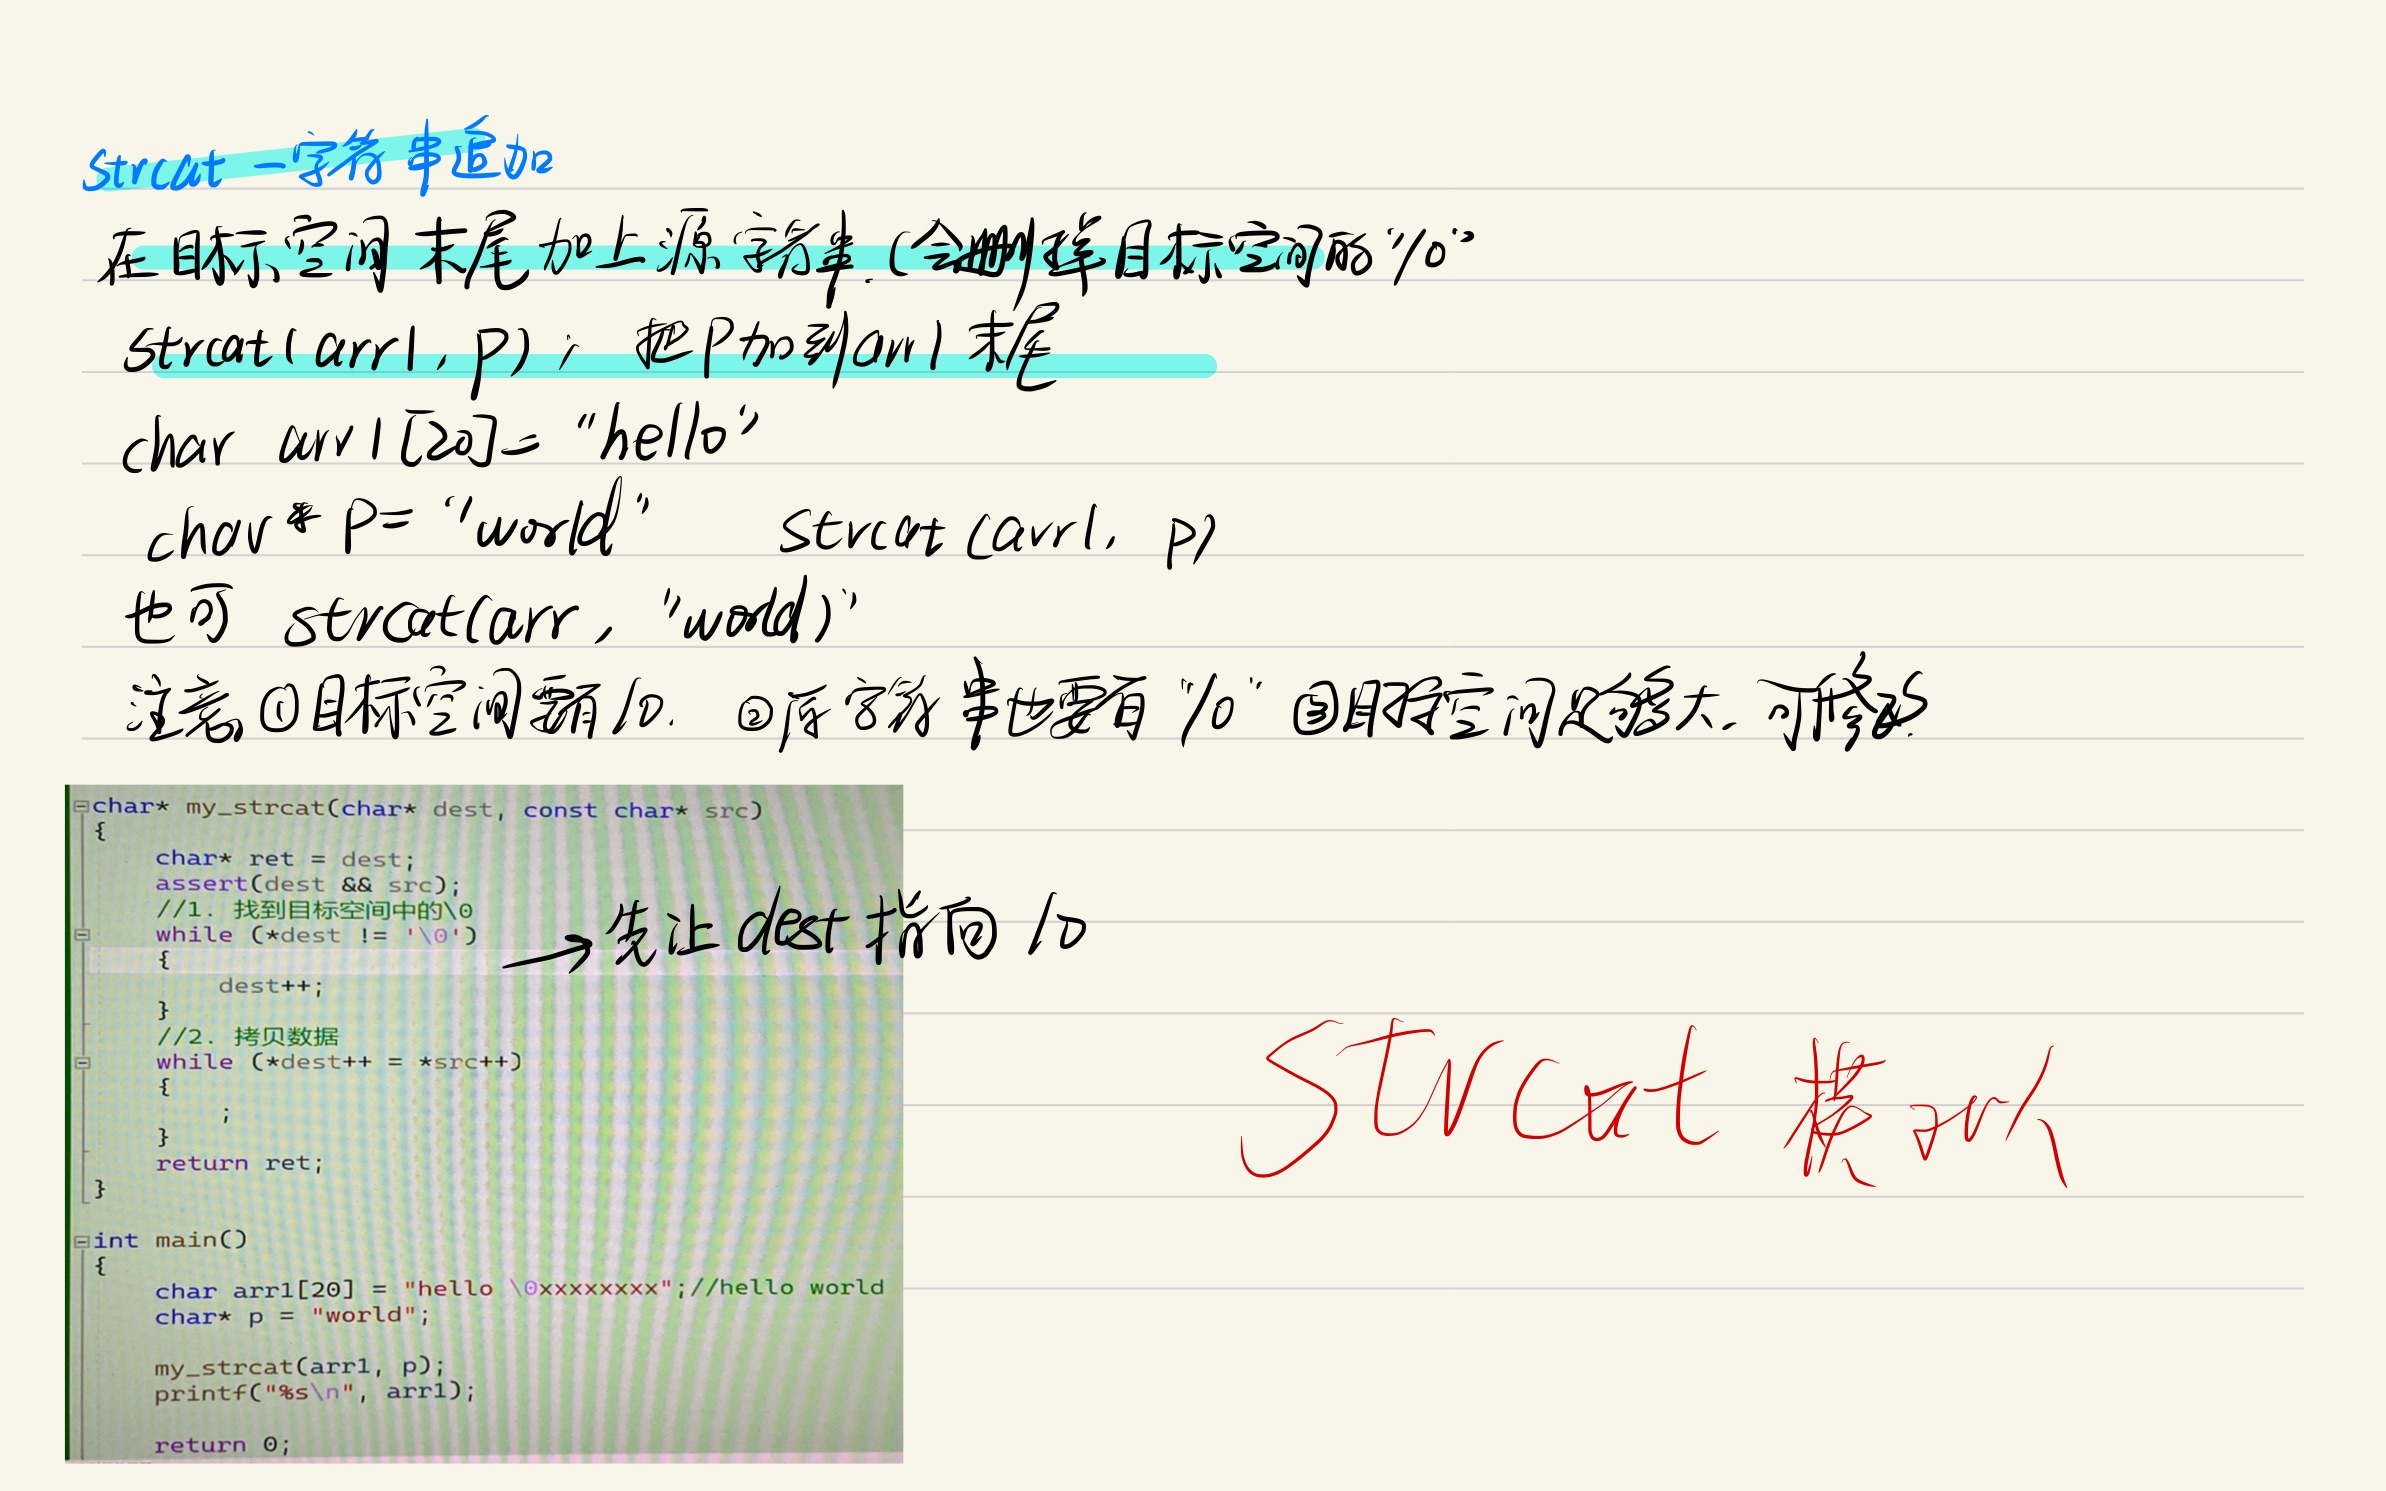 strcat —字符串追加
在目标空间末尾加上源字符串.(会删掉目标空间的"/0"
strcat(arr1, p); 把p加到arr1末尾
char arr1[20]= "hello"
char* p= "world" strcat(arr1, p)
也可 strcat(arr, "world)"
注意 ①目标空间要有/0. ②原字符串也要有"/0" ③目标空间足够大.可修改.
char* my_strcat(char* dest, const char* src)
{
char* ret = dest;
assert(dest && src);
//1. 找到目标空间中的\0
while (*dest != '\0')
{
→先让dest指向/0
dest++;
}
//2. 拷贝数据
while (*dest++ = *src++)
{
;
}
return ret;
}
strcat 模拟
int main()
{
char arr1[20] = "hello \0xxxxxxxx";//hello world
char* p = "world";
my_strcat(arr1, p);
printf("%s\n", arr1);
return 0;